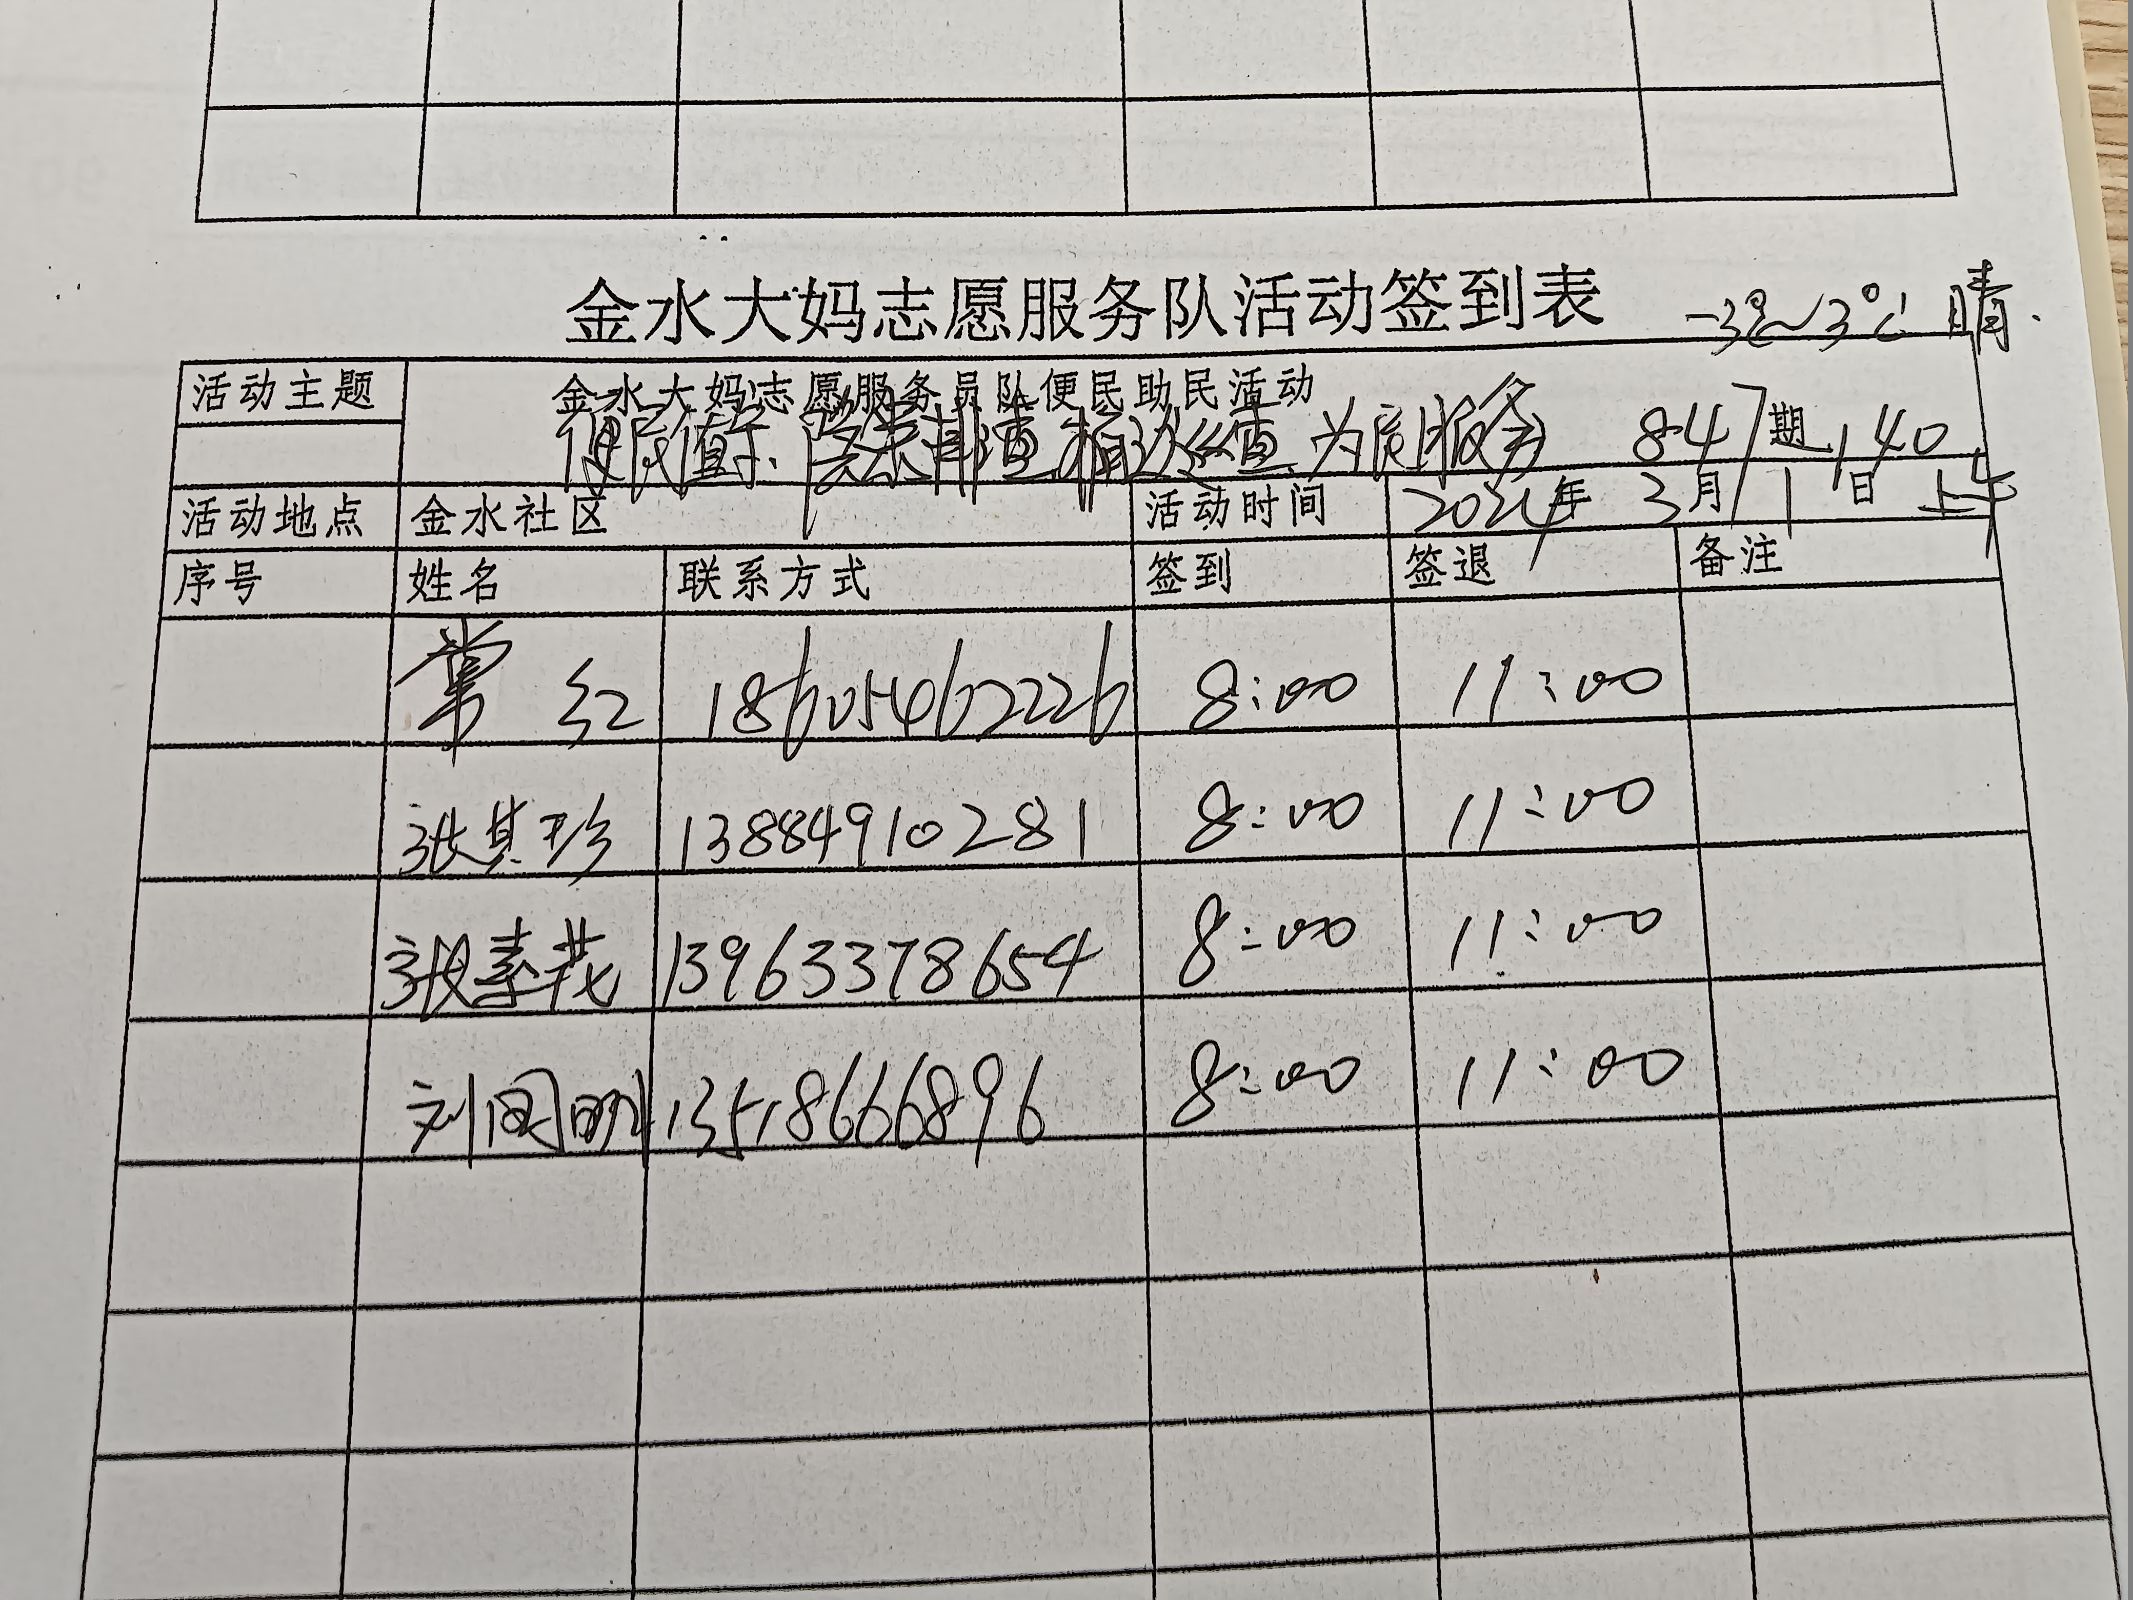 金水大妈志愿服务队活动签到表 -3℃~3℃ 晴.
活动主题 金水大妈志愿服务员队便民助民活动
便民值守、隐患排查 巡查 为民服务 847期 140
活动地点 金水社区 活动时间 2024年 3月 1日 上午
序号 姓名 联系方式 签到 签退 备注
常红 18605462226 8:00 11:00
张其珍 13884910281 8:00 11:00
张素花 13963378654 8:00 11:00
刘国明 13518666896 8:00 11:00